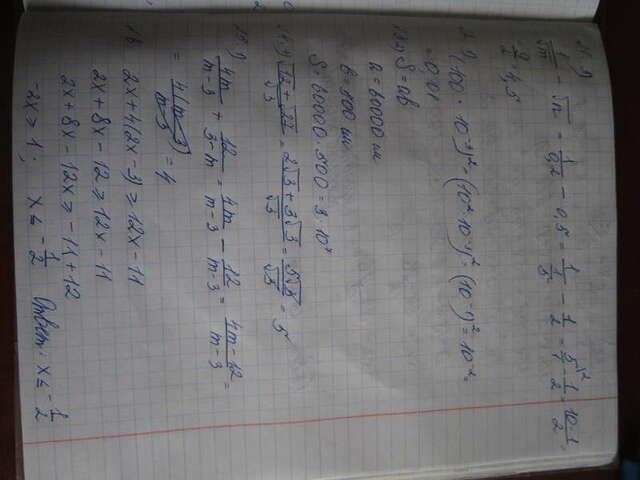 1/√m - √n = 1/0,2 - 0,5 = 1/(1/5) - 1/2 = 5/1 - 1/2 = (10-1)/2 =
9/2 = 4,5
(100 · 10⁻³)² = (10² · 10⁻³)² = (10⁻¹)² = 10⁻² =
= 0,01
S = ab
a = 60000 см
b = 500 см
S = 60000 · 500 = 3 · 10⁷
(√12 + √27)/√3 = (2√3 + 3√3)/√3 = 5√3/√3 = 5
4m/(m-3) + 12/(3-m) = 4m/(m-3) - 12/(m-3) = (4m-12)/(m-3) =
= 4(m-3)/(m-3) = 4
2x + 4(2x-3) ≥ 12x - 11
2x + 8x - 12 ≥ 12x - 11
2x + 8x - 12x ≥ -11 + 12
-2x ≥ 1; x ≤ -1/2 Ответ: x ≤ -1/2